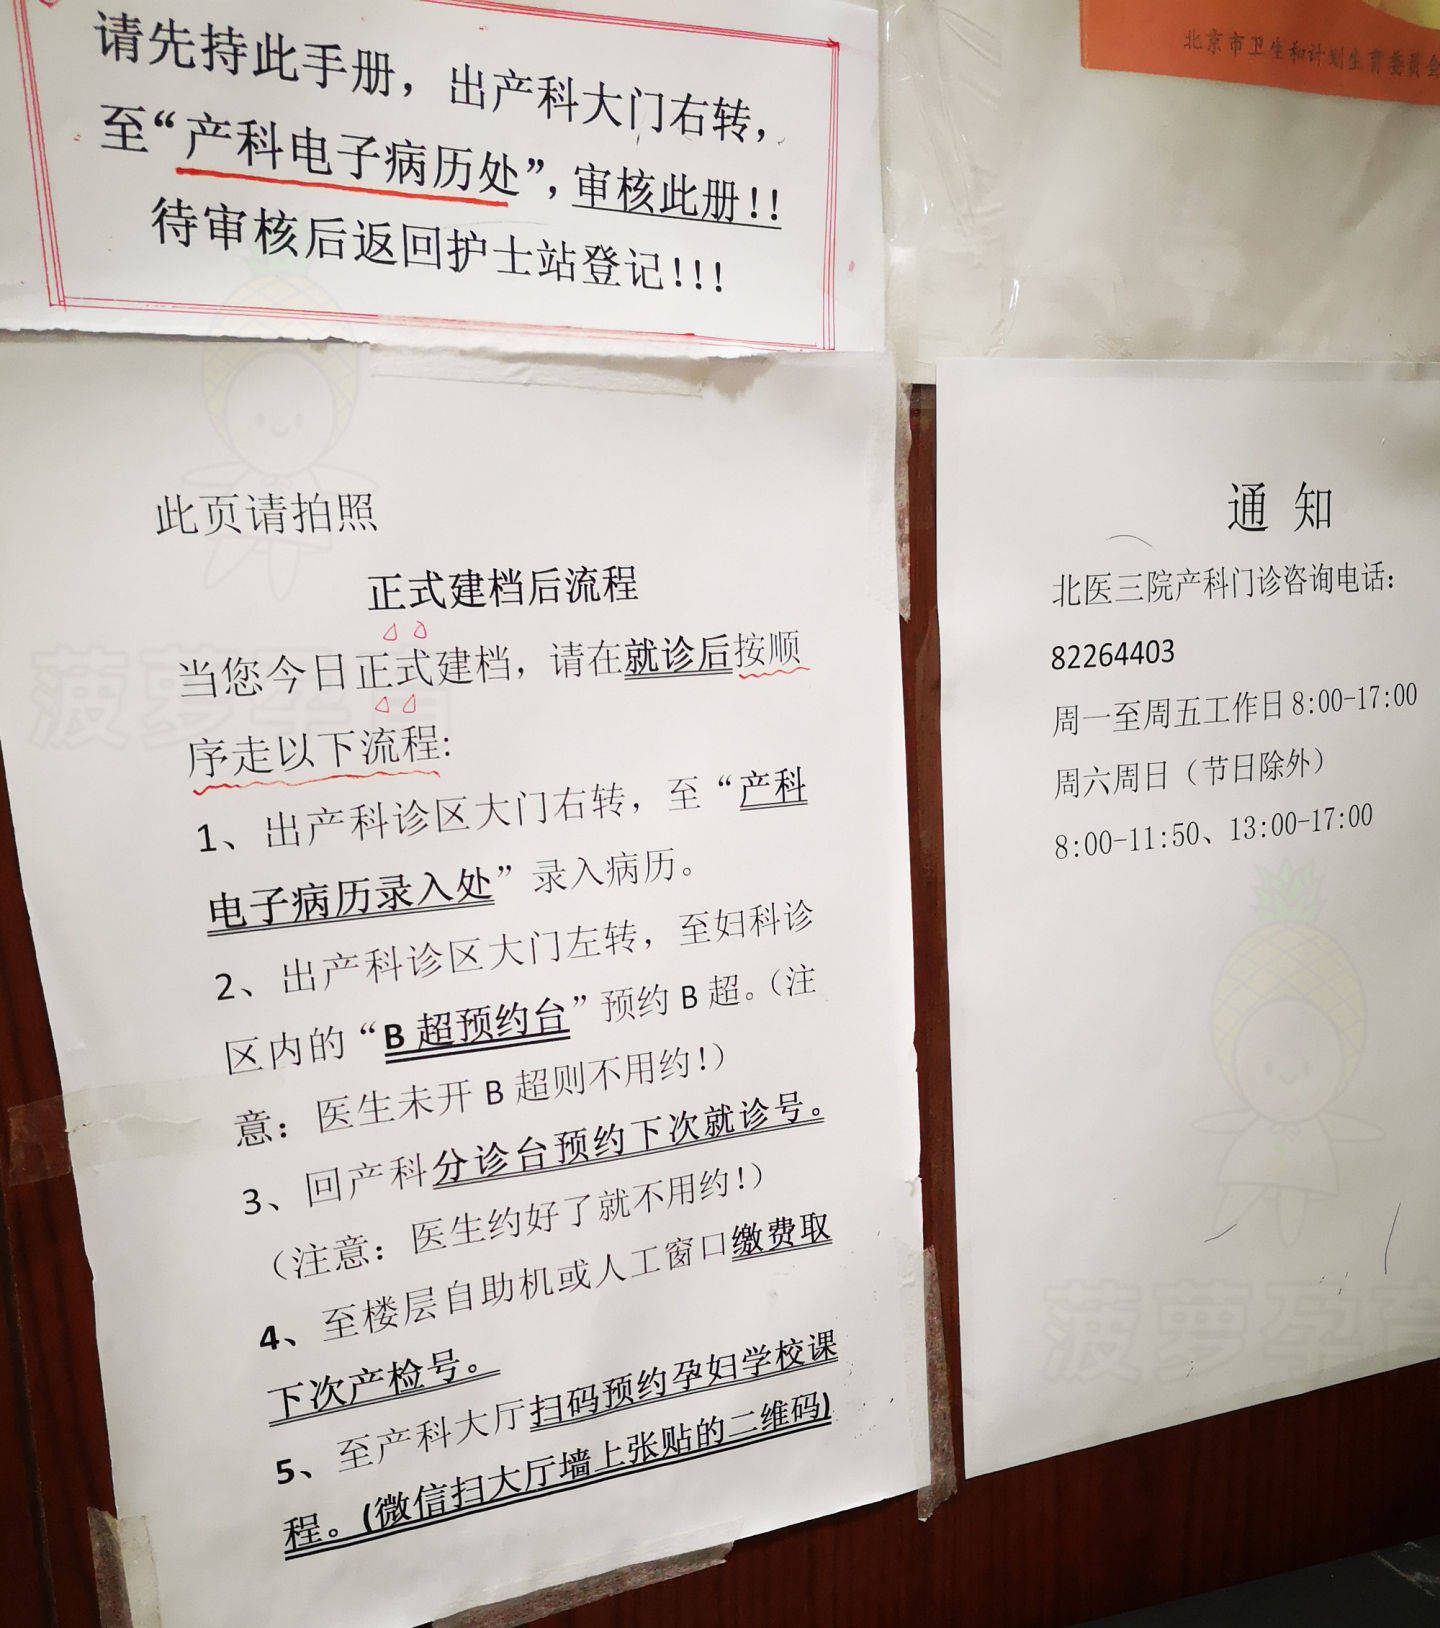 请先持此手册，出产科大门右转，
至“产科电子病历处”，审核此册！！
待审核后返回护士站登记！！！
北京市卫生和计划生育委员会
此页请拍照
正式建档后流程
当您今日正式建档，请在就诊后按顺
序走以下流程:
1、出产科诊区大门右转，至“产科
电子病历录入处”录入病历。
2、出产科诊区大门左转，至妇科诊
区内的“B 超预约台”预约 B 超。（注
意：医生未开 B 超则不用约！）
3、回产科分诊台预约下次就诊号。
（注意：医生约好了就不用约！）
4、至楼层自助机或人工窗口缴费取
下次产检号。
5、至产科大厅扫码预约孕妇学校课
程。(微信扫大厅墙上张贴的二维码)
通 知
北医三院产科门诊咨询电话：
82264403
周一至周五工作日 8:00-17:00
周六周日（节日除外）
8:00-11:50、13:00-17:00
菠萝孕育
菠萝孕育